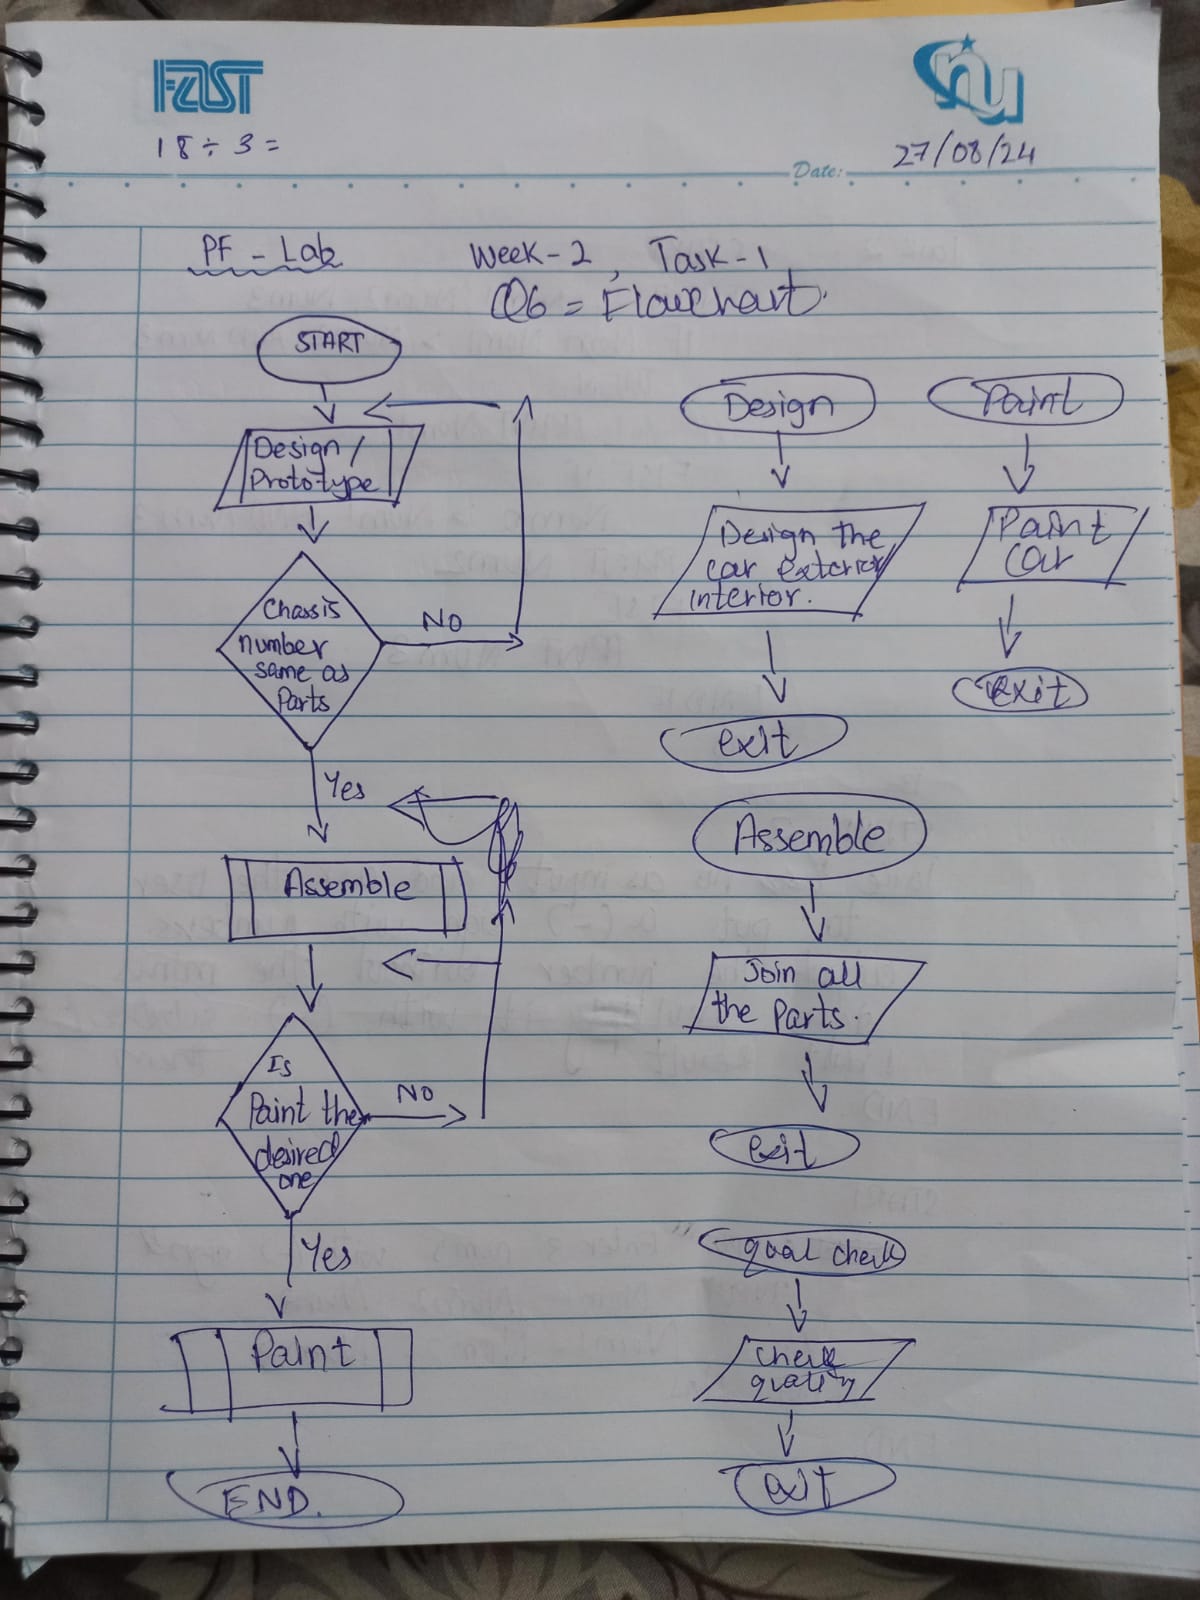 FAST
nu
18 ÷ 3 =
Date: 27/08/24
PF - Lab
Week-2, Task-1
Q6 = Flowchart.
START
Design /
Prototype
Chassis
number
same as
Parts
NO
Yes
Assemble
Is
Paint the
desired
one
NO
Yes
Paint
END.
Design
Design the
car exterior
interior.
exit
Paint
Paint
car
exit
Assemble
Join all
the Parts.
exit
qual check
check
quality
exit